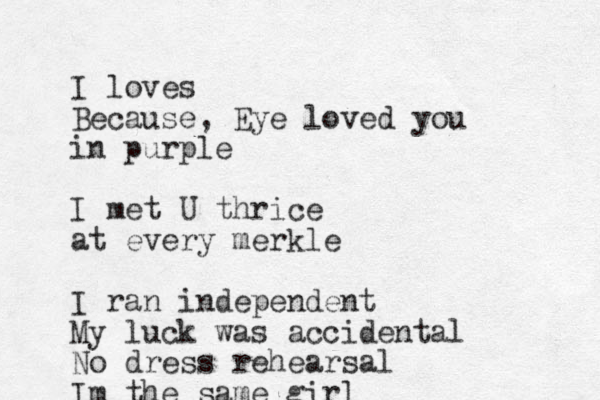 I loves
Because, Eye loved you
in purple

I met U thrice
at every merkle

I ran independent
My luck was accidental
No dress rehearsal
Im the same girl